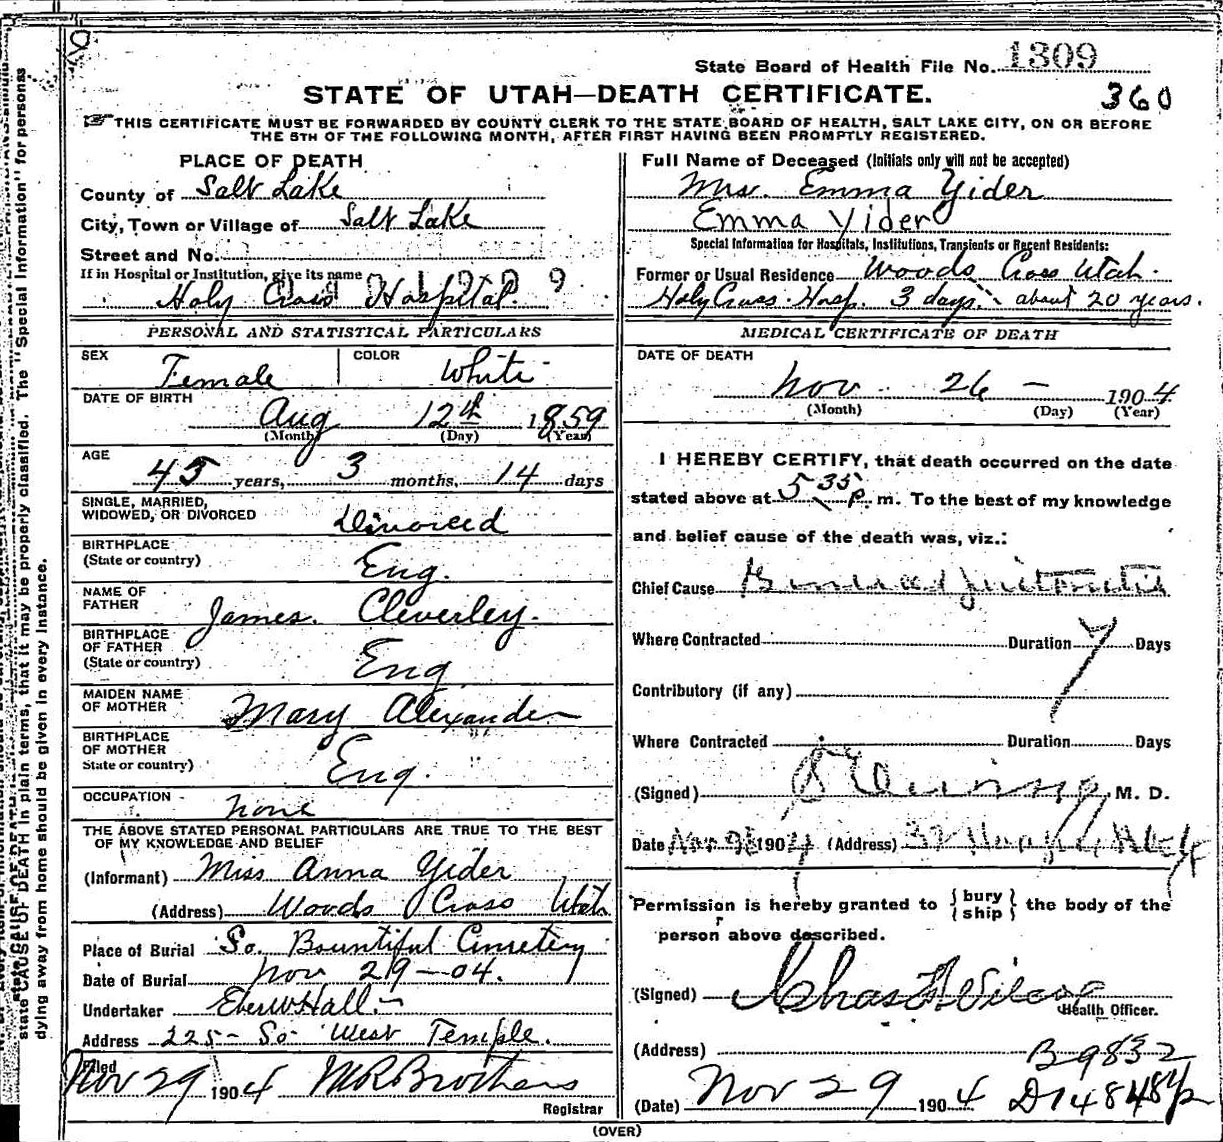 State Board of Health File No. 1309
STATE OF UTAH—DEATH CERTIFICATE.
360
THIS CERTIFICATE MUST BE FORWARDED BY COUNTY CLERK TO THE STATE BOARD OF HEALTH, SALT LAKE CITY, ON OR BEFORE
THE 5TH OF THE FOLLOWING MONTH, AFTER FIRST HAVING BEEN PROMPTLY REGISTERED.
PLACE OF DEATH
County of Salt Lake
City, Town or Village of Salt Lake
Street and No.
If in Hospital or Institution, give its name
Holy Cross Hospital.
PERSONAL AND STATISTICAL PARTICULARS
SEX Female COLOR White
DATE OF BIRTH
Aug 12th 1859
(Month) (Day) (Year)
AGE
45 years, 3 months, 14 days
SINGLE, MARRIED,
WIDOWED, OR DIVORCED Divorced
BIRTHPLACE
(State or country) Eng.
NAME OF
FATHER James Cleverley.
BIRTHPLACE
OF FATHER
(State or country) Eng
MAIDEN NAME
OF MOTHER Mary Alexander
BIRTHPLACE
OF MOTHER
State or country) Eng.
OCCUPATION none
THE ABOVE STATED PERSONAL PARTICULARS ARE TRUE TO THE BEST
OF MY KNOWLEDGE AND BELIEF
(Informant) Miss Anna Yider
(Address) Woods Cross Utah
Place of Burial So. Bountiful Cemetery
Date of Burial Nov 29—04.
Undertaker Eber W Hall
Address 225- So West Temple.
Filed
Nov 29 1904 M R Brothers
Registrar
Full Name of Deceased (Initials only will not be accepted)
Mrs. Emma Yider
Emma Yider
Special Information for Hospitals, Institutions, Transients or Recent Residents:
Former or Usual Residence Woods Cross Utah.
Holy Cross Hosp. 3 days. about 20 years.
MEDICAL CERTIFICATE OF DEATH
DATE OF DEATH
Nov. 26 — 1904
(Month) (Day) (Year)
I HEREBY CERTIFY, that death occurred on the date
stated above at 5 35 p. m. To the best of my knowledge
and belief cause of the death was, viz.:
Chief Cause
Where Contracted Duration 7 Days
Contributory (if any)
Where Contracted Duration Days
(Signed) M. D.
Date Nov. 1904 (Address) 32
Permission is hereby granted to { bury ship } the body of the
person above described.
(Signed) Chas F Wilcox
Health Officer.
(Address) B 9832
(Date) Nov 29 1904 D 14848 1/2
(OVER)
state CAUSE OF DEATH in plain terms, that it may be properly classified. The "Special Information" for persons
dying away from home should be given in every instance.